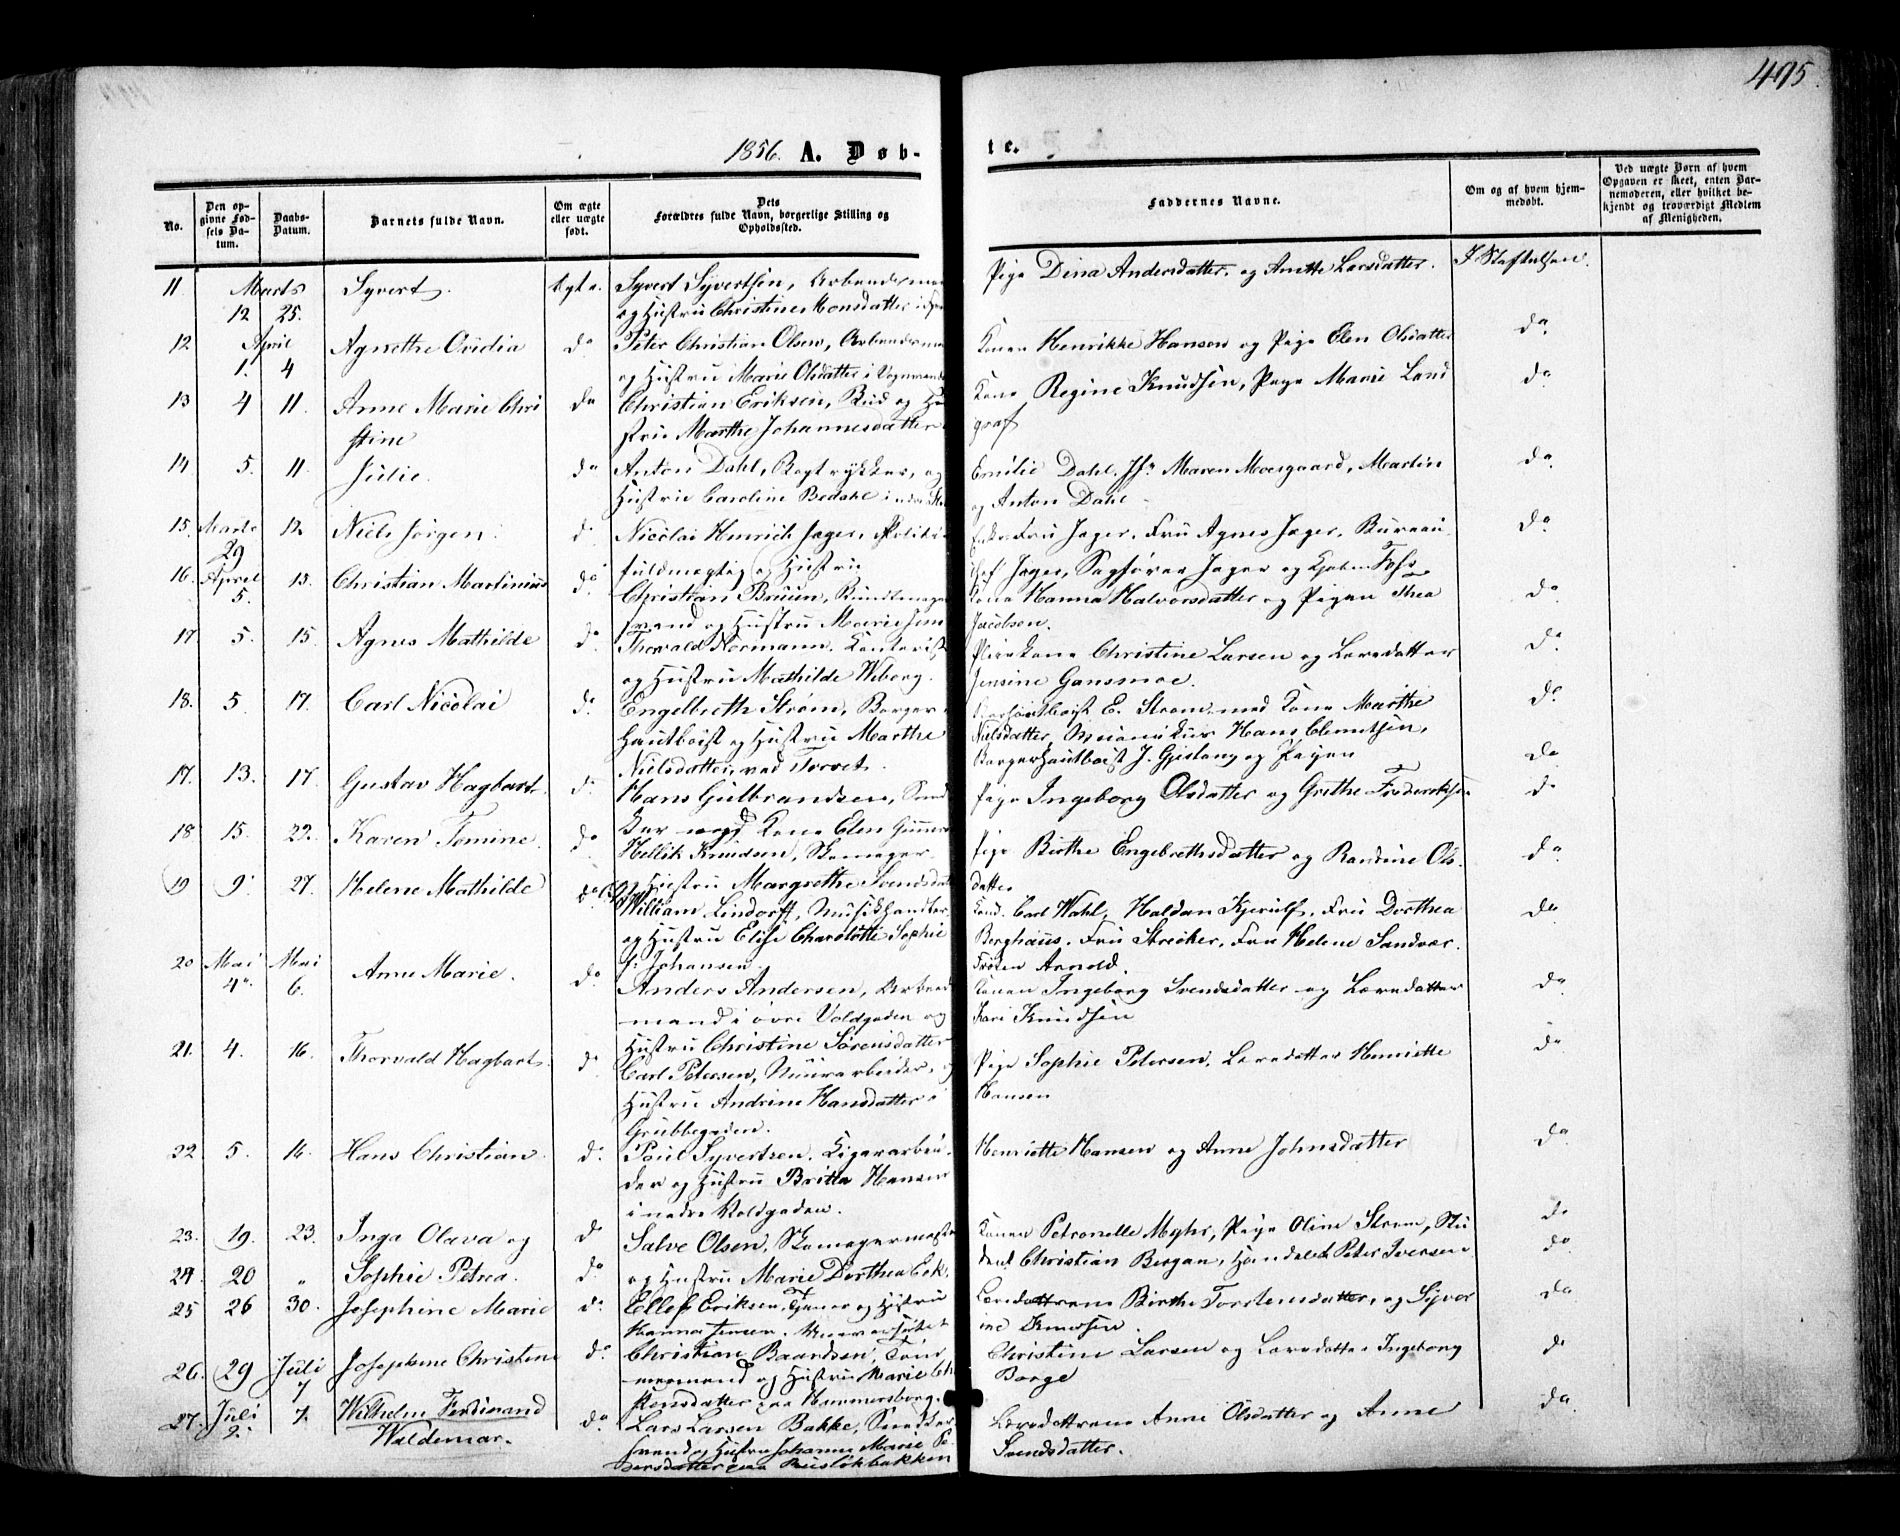 495.
1856. A. Døb-
te.
No.
Den op-
givne Fød-
sels Da-
tum.
Daabs-
Datum.
Barnets fulde Navn.
Om ægte
eller uægte
født.
Dets
Forældres fulde Navn, borgerlige Stilling og
Opholdssted.
Faddernes Navne.
Om og af hvem hjem-
medøbt.
Ved uægte Børn af hvem
Opgaven er skeet, enten Bar-
nemoderen, eller hvilket be-
kjendt og troværdigt Medlem
af Menigheden.
11 Marts 12 25. Syvert. ægte. Syvert Syvertsen, Arbeidsman
og Hustru Christine Monsdatter
Pige Dina Andersdatter, og Anette Larsdatter.
12 April 1. 4 Agnethe Ovidia do Peter Christian Olsen, Arbeidsman
og Hustru Marie Olsdatter i
Konen Henrikke Hansen og Pige Elen Olsdatter do
13 4 11. Anne Marie Chri
stine do Christian Eriksen, Bud og Hu
stru Marthe Johannesdatter
Kone Regine Knudsen, Pige Marie Land
graf do
14 5. 11. Julie. do Anton Dahl, Bogtrykker, og
Hustru Caroline Bedske
Emilie Dahl, Jfr Maren Moesgaard, Martin
og Anton Dahl do
15. Marts 29 12 Niels Jørgen. do Nicolai Henrich Jager, Politi
fuldmægtig og Hustru
Fru Jager, Fru Agnes Jager, Bureau
chef Jager, Sagfører Jager og Kjøbm. Foss do
16. April 5. 15. Christian Martinius do Christian Bruun, Bundtmager
svend og Hustru Marie
Kone Hanna Halvorsdatter og Pigen Thea
Jacobsen. do
17 5. 15. Agnes Mathilde do Thorvald Normann, Contorist
og Hustru Mathilde Wiborg.
Pleiekone Christine Larsen og Læredatter
Jensine Gansmoe. do
18. 5 17. Carl Nicolai do Engelbreth Strøm, Borger
Hautboist og Hustru Marthe
Nielsdatter, ved Torvet.
E. Strøm med Kone Marthe
Nielsdatter, Hans Clemetsen,
Borgerhautboist J. Gjeslang og Pigen do
17. 13. 17. Gustav Hagbart. do Hans Gulbrandsen, Sned
ker og Kone Elen
Pige Ingeborg Olsdatter og Grethe Frederiksen do
18 15. 22. Karen Tomine. do Hellik Knudsen, Skomager
og Hustru Margrethe Svendsdat
Pige Birthe Engebrethsdatter og Randine Ols
datter do
19 9. 27. Helene Mathilde do William Lindorff, Musikhandler,
og Hustru Elise Charolotte Sophie
f. Johansen.
Cand. Carl Wahl, Haldan Kjerulf, Fru Dorthea
Berghaus, Fru Strecker, Fru Helene Sandvær.
Frøken Arnold. do
20 Mai 4. Mai 6. Anne Marie. do Anders Andersen, Arbeids
mand i øvre Voldgaden og
Hustru Christine Sørensdatter
Konen Ingeborg Svendsdatter og Læredatter
Kari Knudsen do
21. 4. 16. Thorvald Hagbart. do Carl Petersen, Muurarbeider, og
Hustru Andrine Hansdatter i
Grubbegaden.
Pige Sophie Petersen, Læredatter Henriette
Hansen do
22 5. 16. Hans Christian. do Poul Syvertsen, Cigararbei
der og Hustru Britta Hansen
i nedre Voldgaden.
Henriette Hansen og Anne Johnsdatter do
23. 19. 23. Inga Olava og do Salve Olsen, Skomagermester
Konen Petronelle Myhr, Pige Oline Strøm, Stu
24. 20 " Sophie Petrea. do og Hustru Marie Dorthea Eck
dent Christian Bergan, Handelsb. Peter Iversen do
25 26 30. Josephine Marie do Ellef Eriksen, Tjener og Hustru
Hanna Jensen.
Læredattrene Birthe Torstensdatter, og Syver
ine Knudsen. do
26. 29 Juli 7 Josephine Christine do Christian Baardsen, Tøm
mermand og Hustru Marie Chr
stensdatter paa Hammersborg.
Christine Larsen og Læredatter Ingeborg
Borge do
27. Juli 2. 7. Wilhelm Ferdinand
Waldemar. do Lars Larsen Bakke, Snedker
svend og Hustru Johanne Marie Pe
dersdatter paa Ruseløkbakken
Læredattrene Anne Olsdatter og Anne
Svendsdatter. do